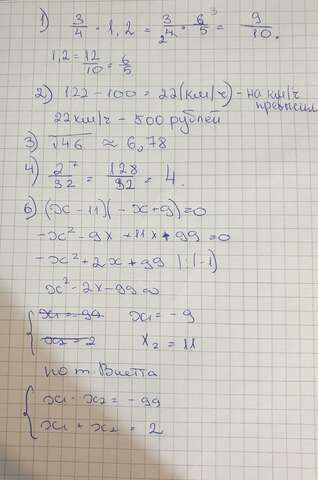 1) 3/4 · 1,2 = 3/4 · 6/5 = 9/10.
2 3
1,2 = 12/10 = 6/5
2) 122 - 100 = 22 (км/ч) - на км/ч
превысил
22 км/ч - 500 рублей
3) √46 ≈ 6,78
4) 2⁷/32 = 128/32 = 4.
6) (x - 11)(-x + 9) = 0
-x² - 9x + 11x + 99 = 0
-x² + 2x + 99 | : (-1)
x² - 2x - 99 = 0
x1 = -99 x1 = -9
x2 = 2 x2 = 11
по т. Виетта
x1 · x2 = -99
x1 + x2 = 2